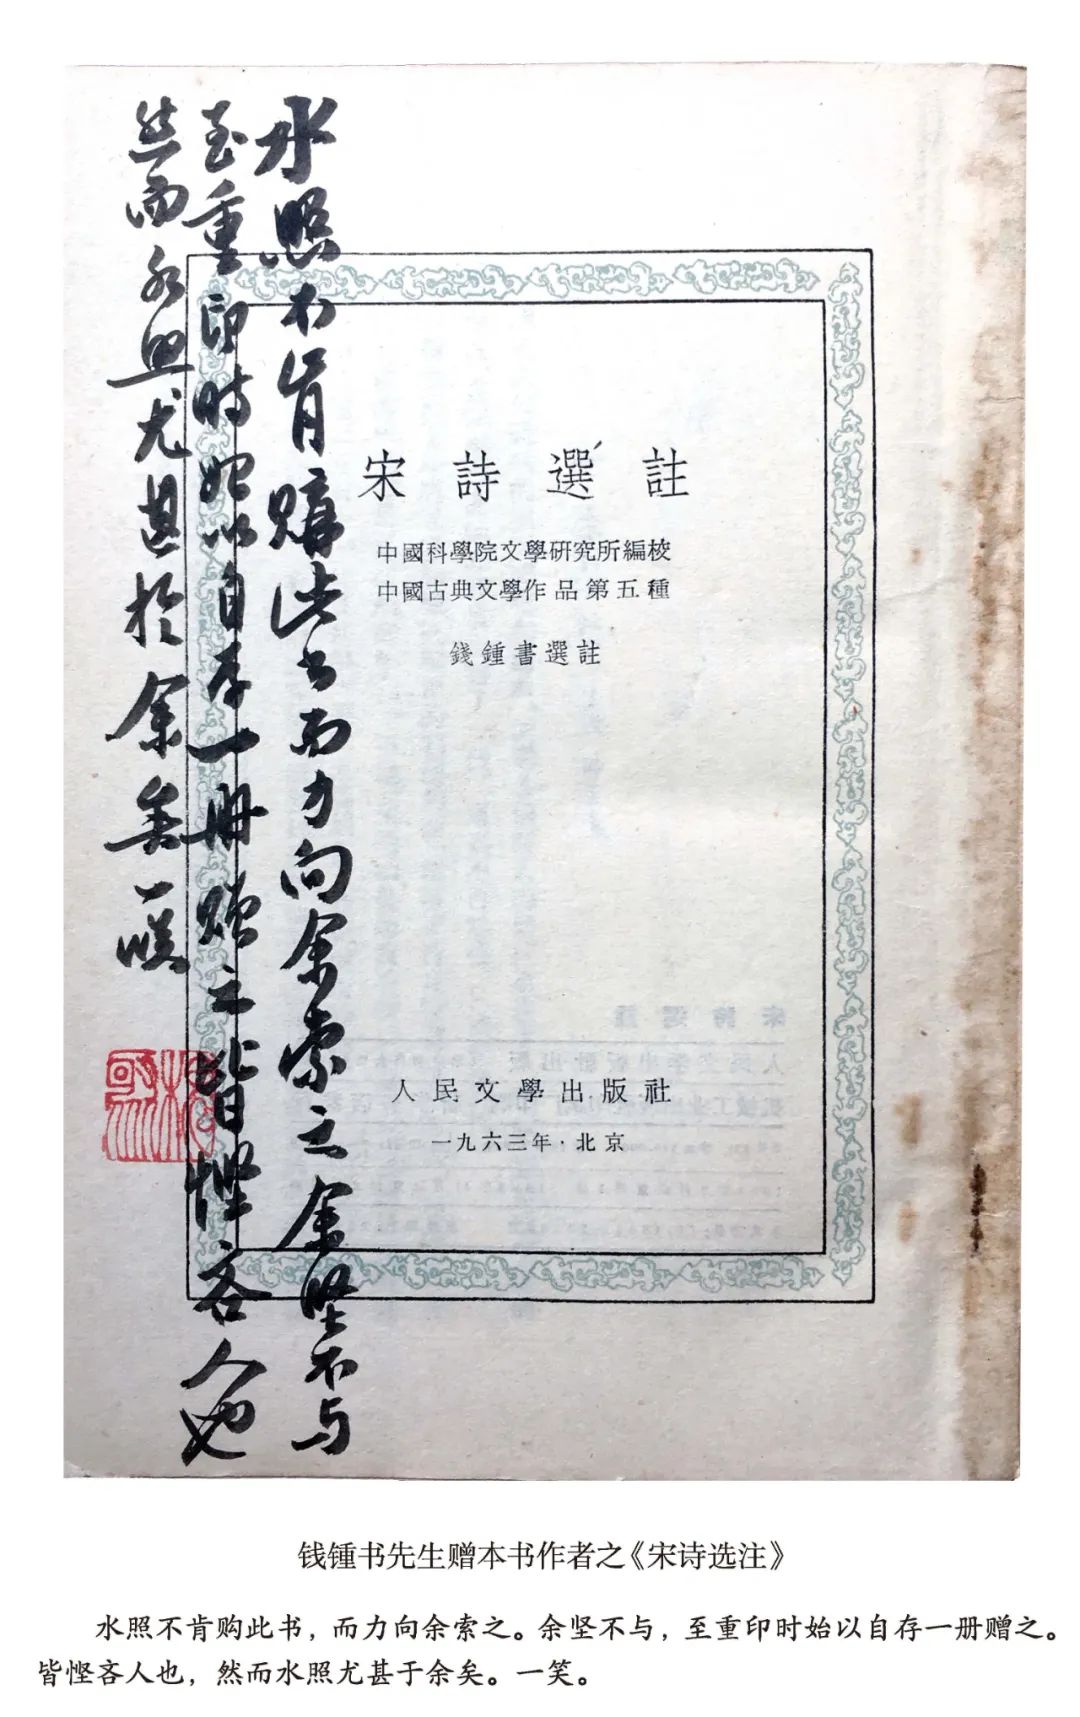 水照不肯購此书而力向余索之余坚不与
至重印時始以自存一册赠之皆悭吝人也
然而水照尤甚於余矣一咲
宋詩選註
中國科學院文學研究所編校
中國古典文學作品第五種
錢鍾書選註
人民文學出版社
一九六三年·北京
钱锺书先生赠本书作者之《宋诗选注》
水照不肯购此书，而力向余索之。余坚不与，至重印时始以自存一册赠之。
皆悭吝人也，然而水照尤甚于余矣。一笑。